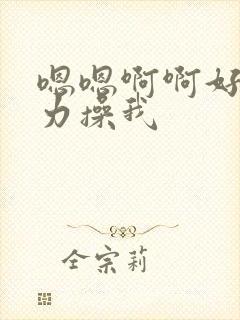 嗯嗯啊啊好
力操我
全宗莉